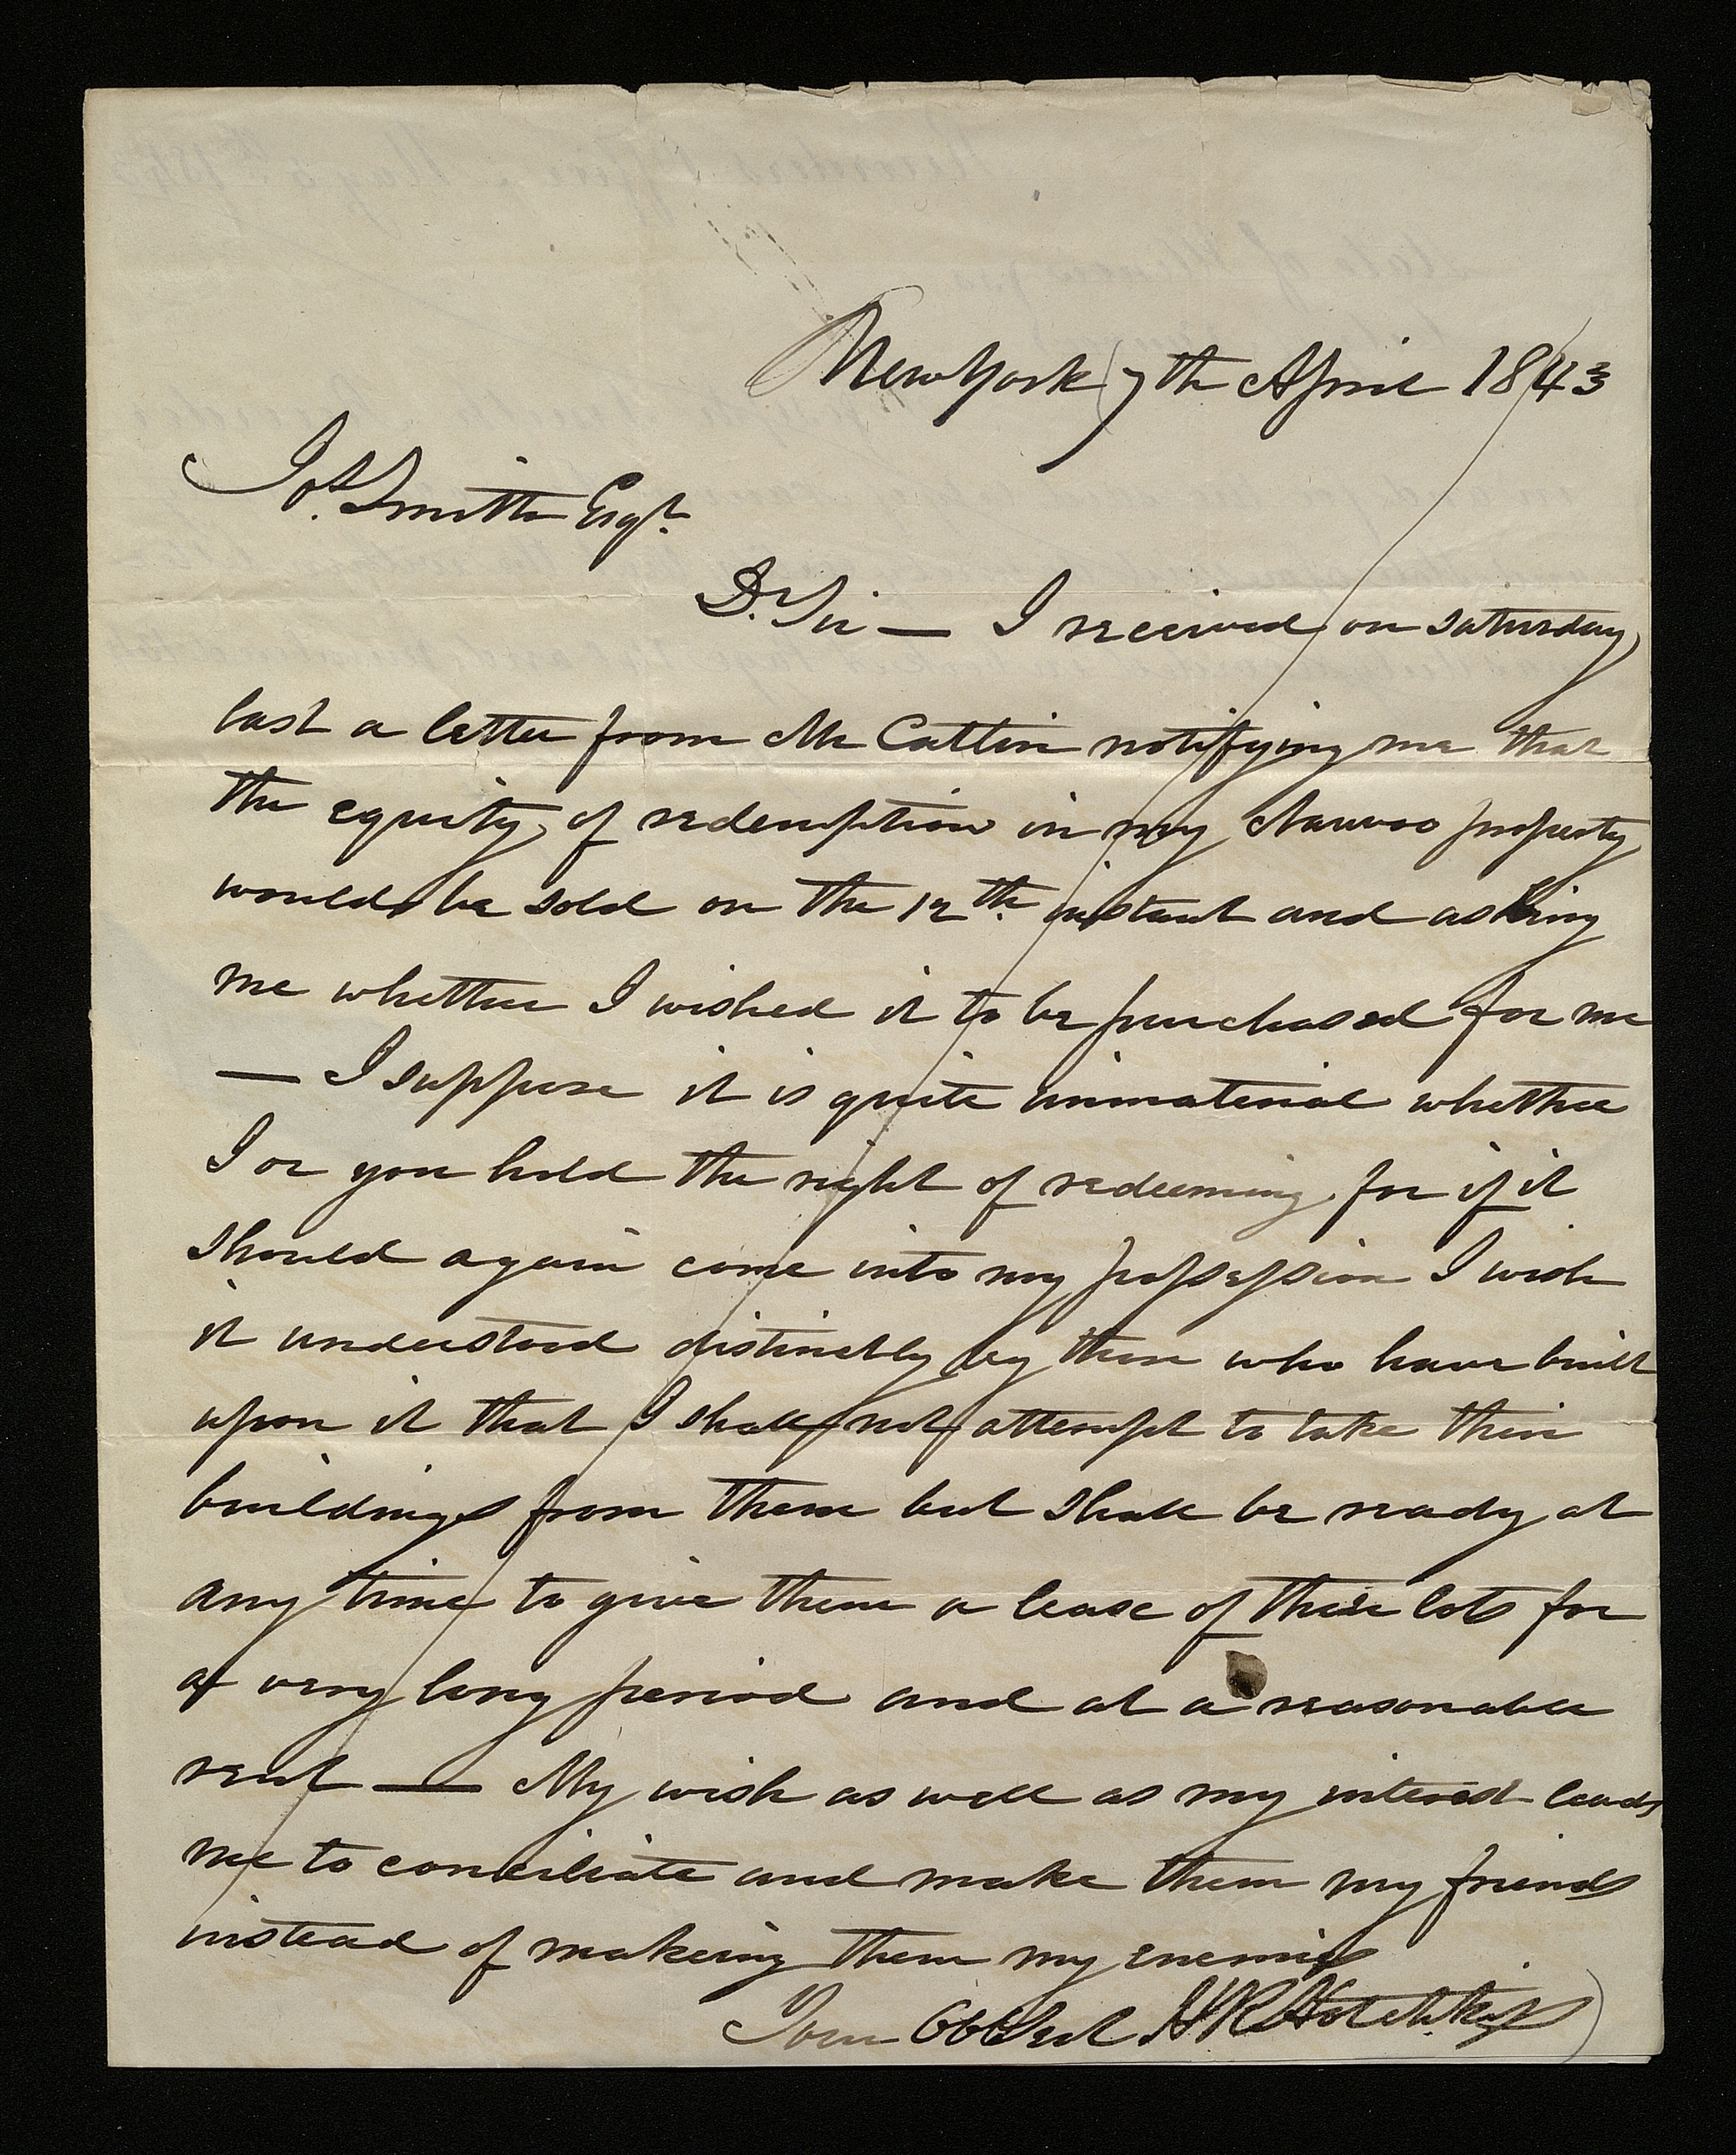 New York 7th April 1843
Jos. Smith Esqr.
Dr. Sir — I received on saturday
last a letter from Mr Catlin notifying me that
the equity of redemption in my Nauvoo property
would be sold on the 12th. instant and asking
me whether I wished it to be purchased for me
— I suppose it is quite immaterial whether
I or you hold the right of redeeming for if it
should again come into my possession I wish
it understood distinctly by those who have built
upon it that I shall not attempt to take their
buildings from them but shall be ready at
any time to give them a lease of their lots for
a very long period and at a reasonable
rent — My wish as well as my interest leads
me to conciliate and make them my friends
instead of making them my enemies
Your Obt Svt H R Hotchkiss